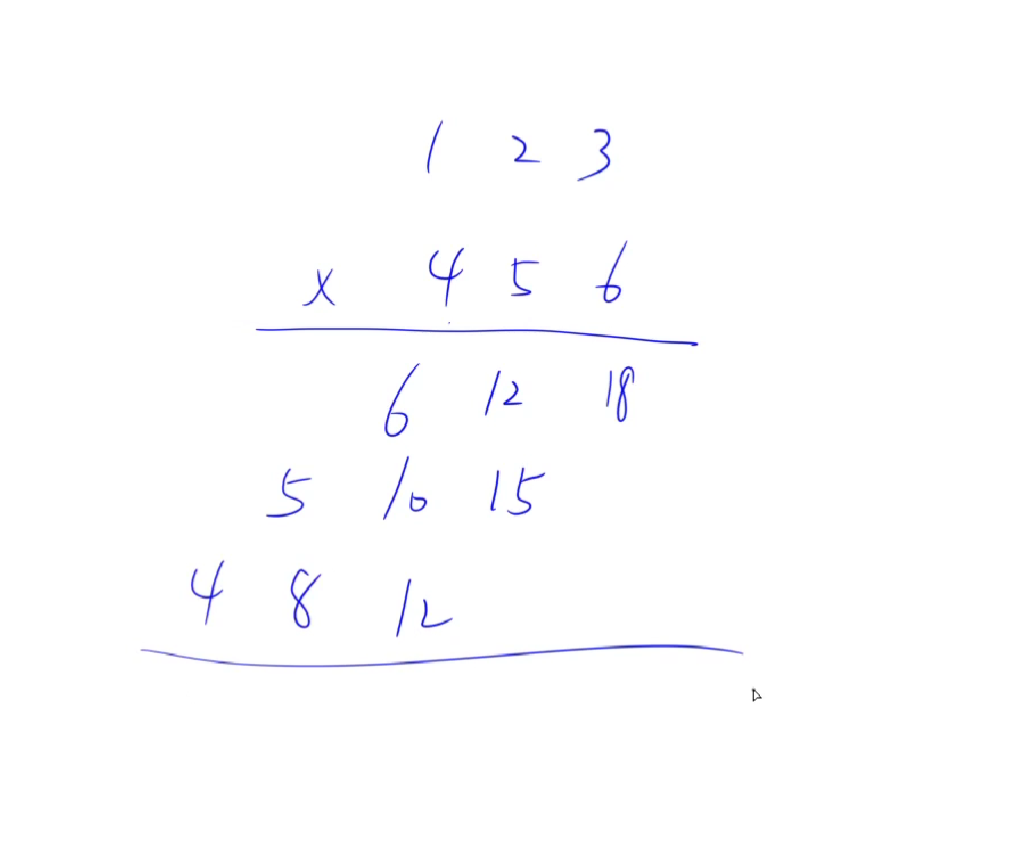 1 2 3
x 4 5 6
6 12 18
5 10 15
4 8 12